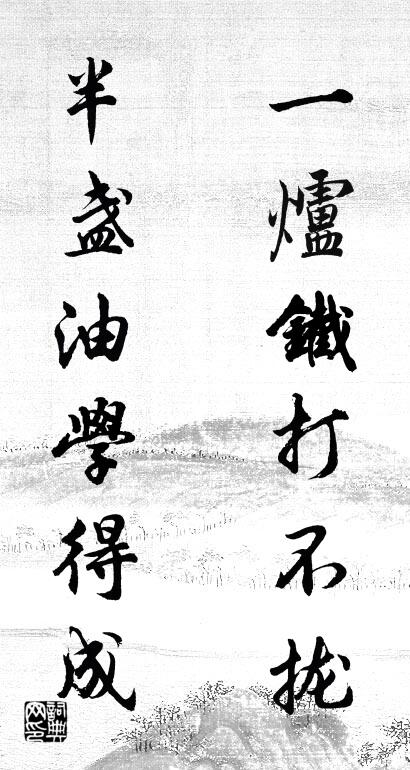 一爐鐵打不拢
半盏油學得成
詞典網